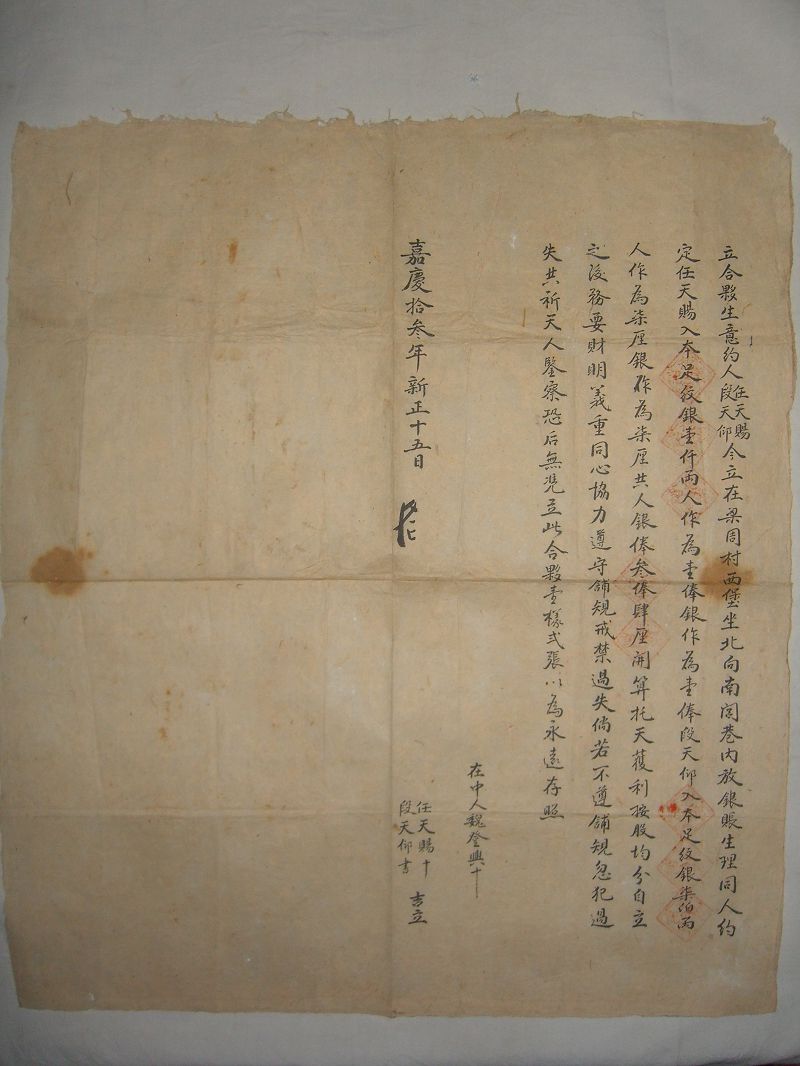 立合夥生意約人任天賜段天仰今立在梁周村西堡坐北向南闾巷內放銀賬生理同人約
定任天賜入本足紋銀壹仟兩人作為壹俸銀作為壹俸段天仰入本足紋銀柒伯兩
人作為柒厘銀作為柒厘共人銀俸叁俸肆厘開算托天獲利按股均分自立
之後務要財明義重同心協力遵守鋪規戒禁過失倘若不遵鋪規忽犯過
失共祈天人鑒察恐后無凴立此合夥壹樣弍張以為永遠存照
在中人魏登興十
嘉慶拾叁年新正十五日
任天賜十
段天仰書
吉立